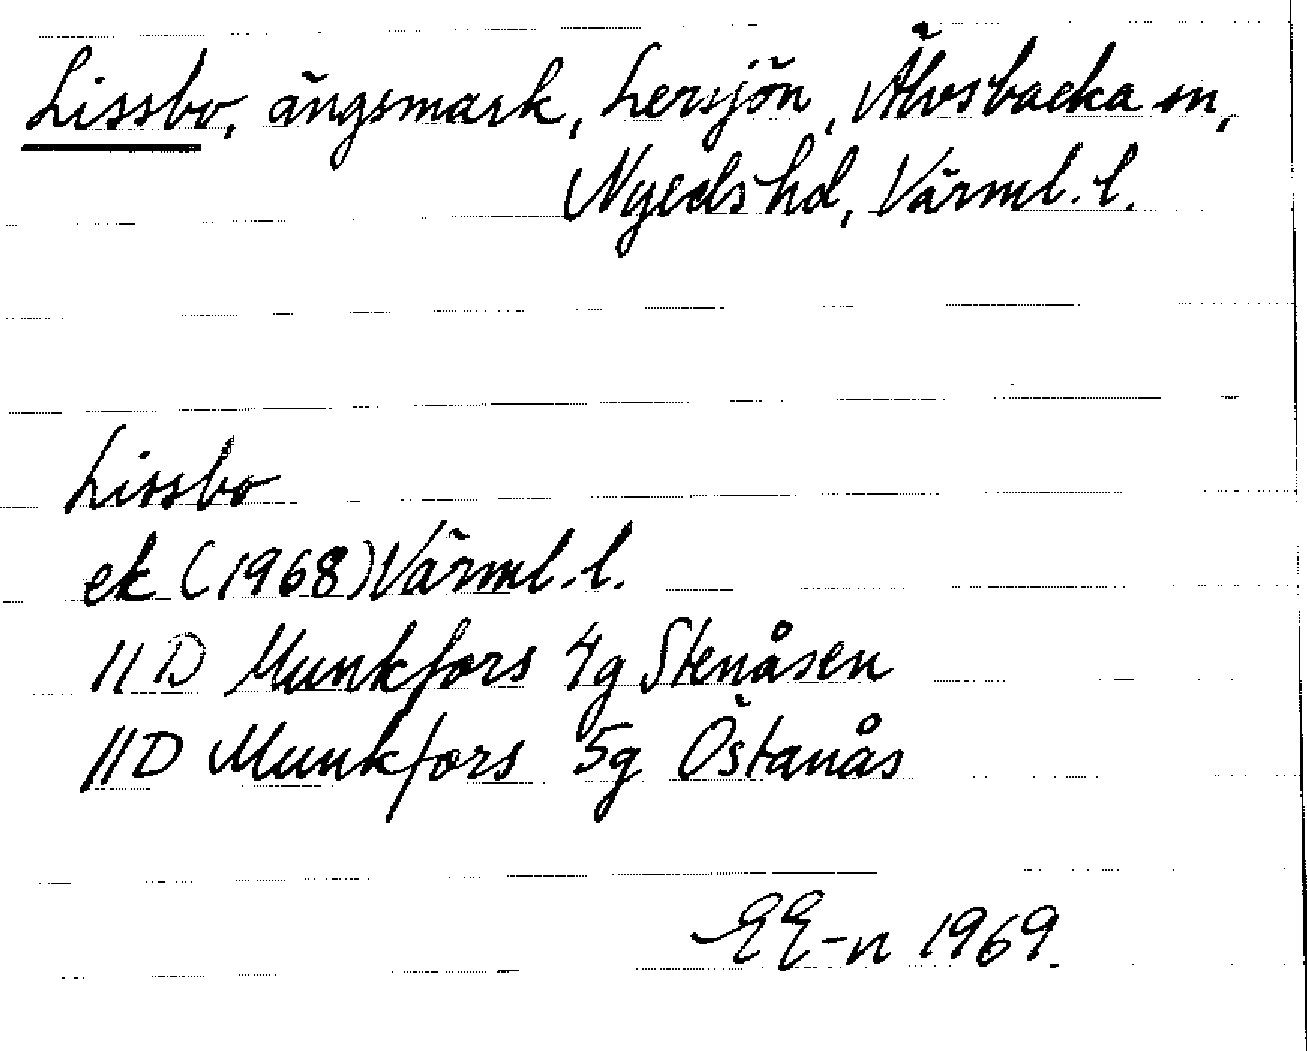 Lissbo, ängsmark, Lersjön, Älvsbacka sn,
Nyeds hd, Värml. l.
Lissbo
ek (1968) Värml. l.
11D Munkfors 4g Stenåsen
11D Munkfors 5g Östanås
EE-n 1969.